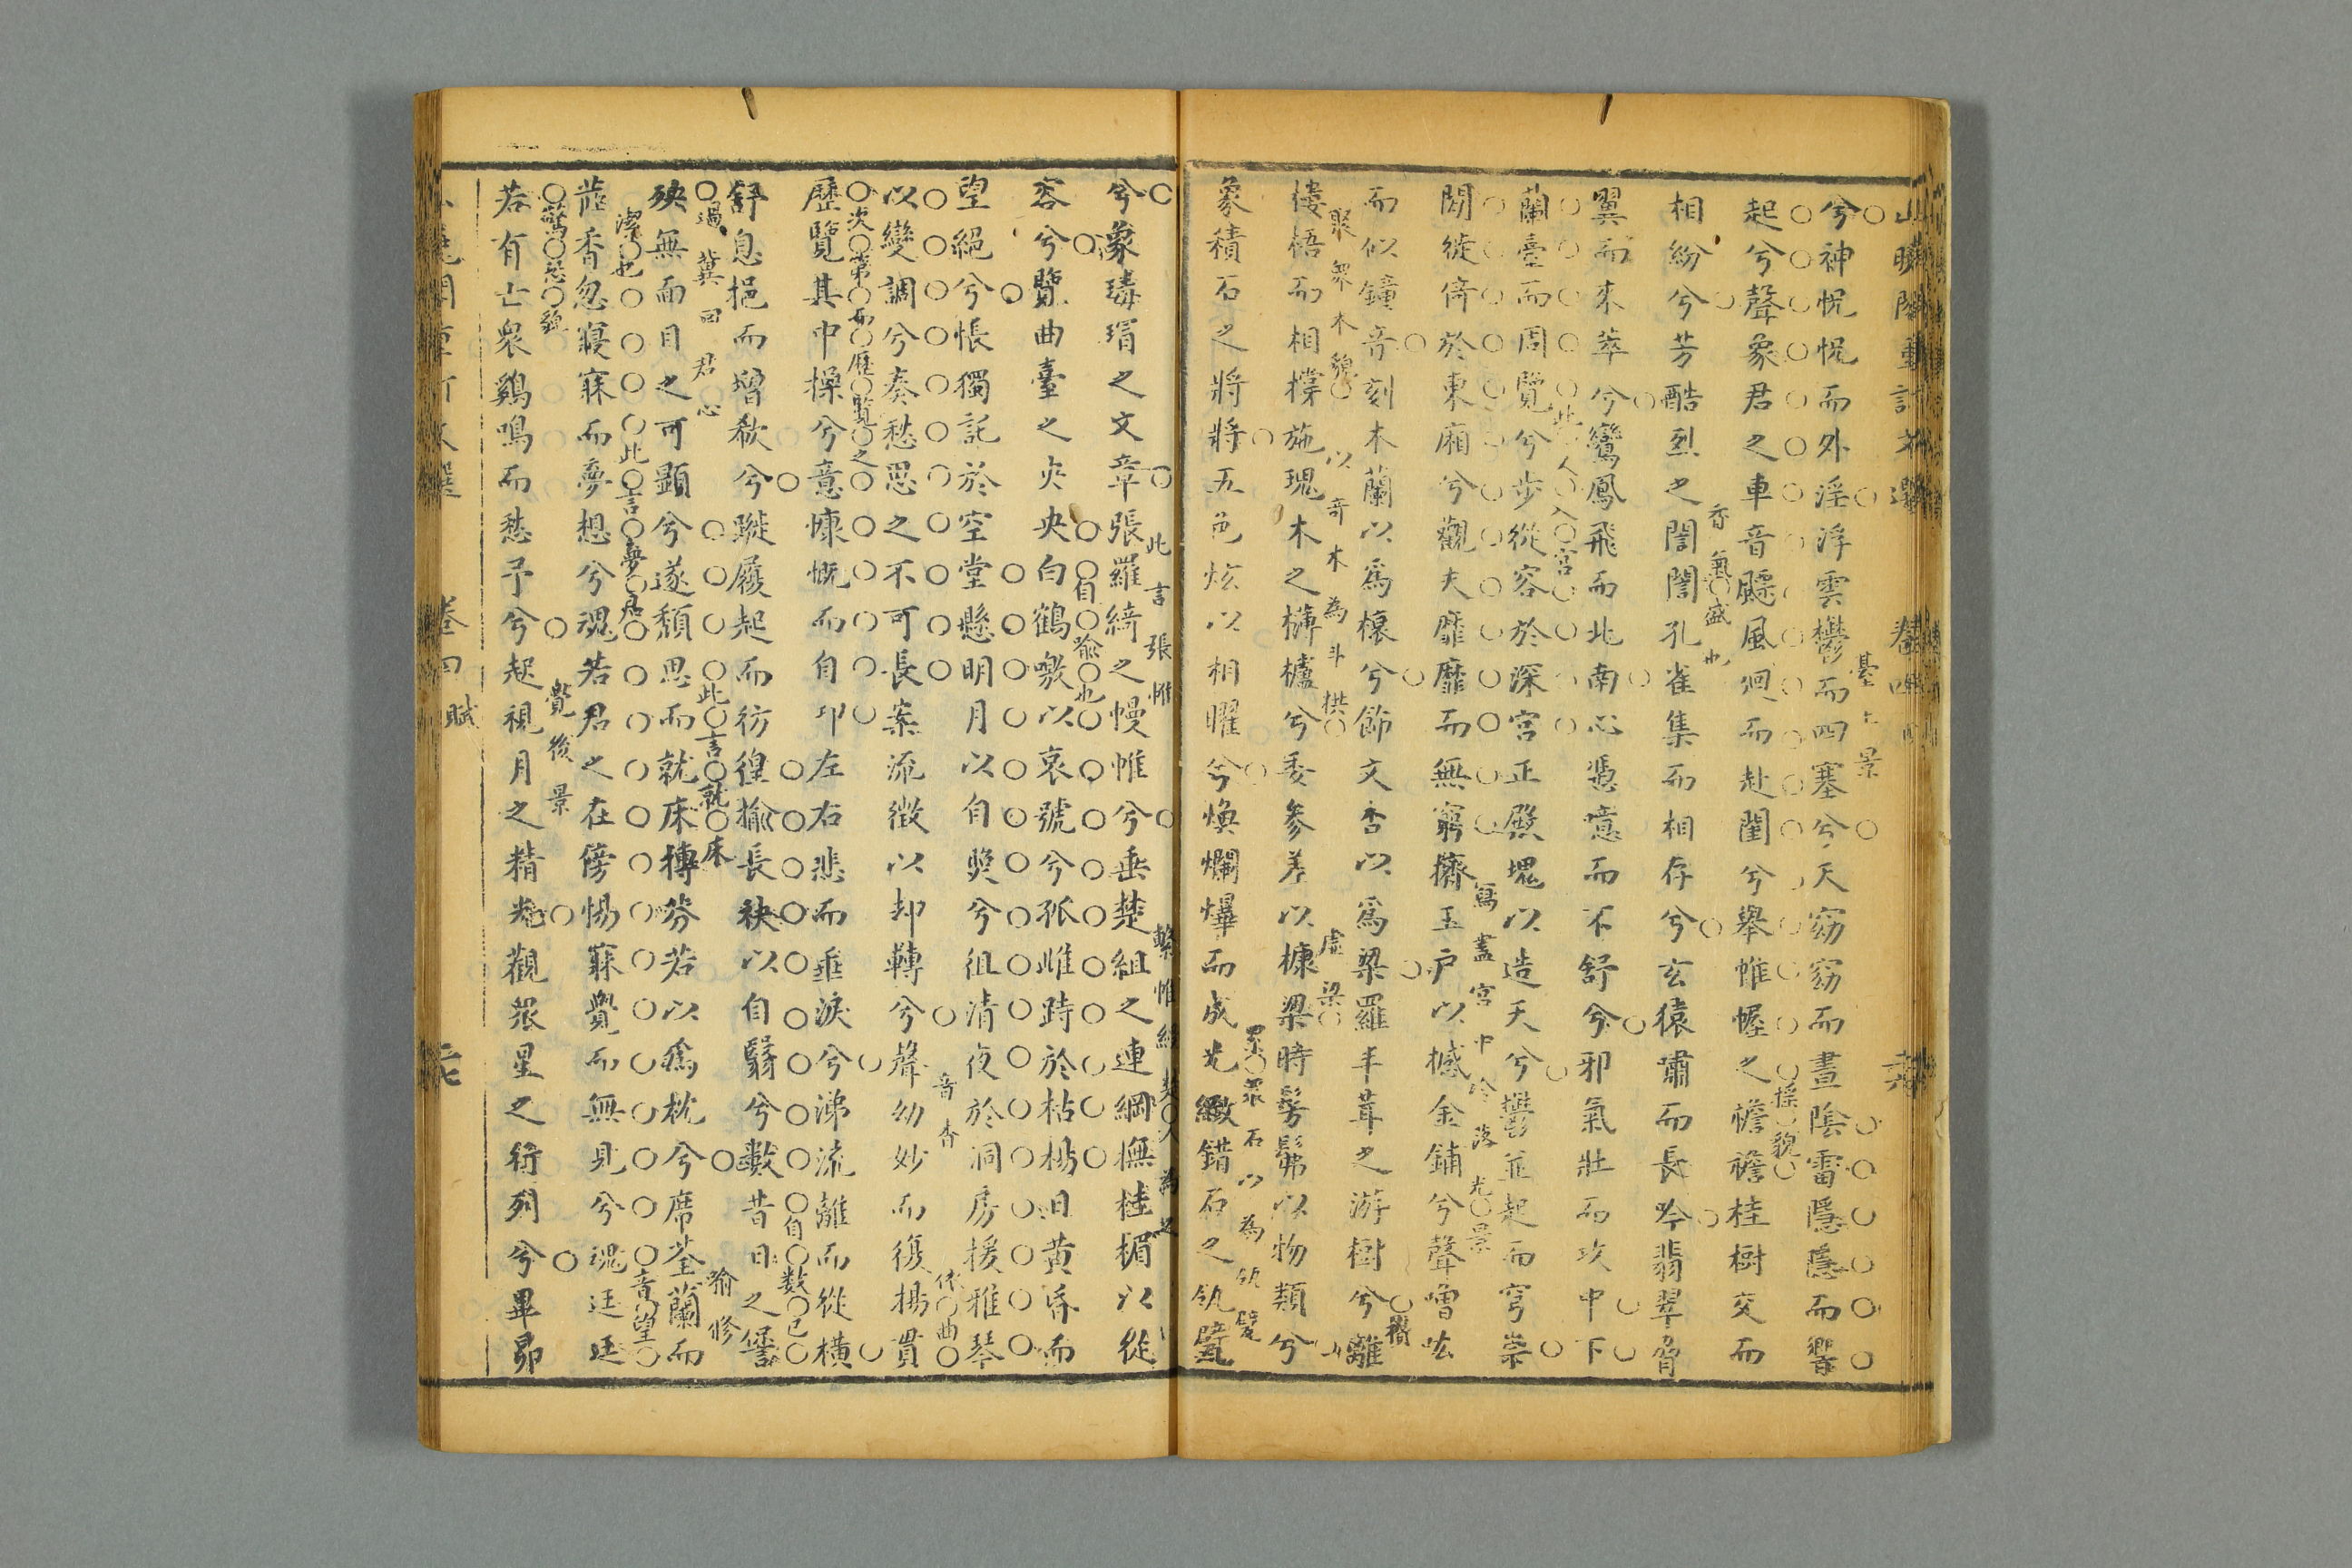 兮神怳怳而外淫浮雲鬱而四塞兮天窈窈而晝陰雷隱隱而響
臺上景
起兮聲象君之車音飄風廻而赴閨兮舉帷幄之襜襜桂樹交而
搖貌
相紛兮芳酷烈之誾誾孔雀集而相存兮玄猿嘯而長吟翡翠脅
香氣盛也
翼而來萃兮鸞鳳飛而北南心憑噫而不舒兮邪氣壯而攻中下
蘭臺而周覽兮步從容於深宮正殿塊以造天兮鬱並起而穹崇
此入宮
閒徙倚於東廂兮觀夫靡靡而無窮擠玉戶以撼金鋪兮聲噌吰
寫盡宮中冷落光景
而似鐘音刻木蘭以爲榱兮飾文杏以爲梁羅丰茸之游樹兮離
樓梧而相撐施瑰木之欂櫨兮委參差以槺梁時髣髴以物類兮
聚衆木貌 以奇木為斗栱 虛梁
象積石之將將五色炫以相曜兮煥爛爗而成光緻錯石之瓴甓
累衆石以為瓴甓
兮象瑇瑁之文章張羅綺之幔帷兮垂楚組之連綱撫桂楣以從
此言張帷
容兮覽曲臺之央央白鶴噭以哀號兮孤雌跱於枯楊日黃昏而
自喻也
望絕兮悵獨託於空堂懸明月以自照兮徂清夜於洞房援雅琴
以變調兮奏愁思之不可長案流徵以却轉兮聲幼妙而復揚貫
音杳
歷覽其中操兮意慷慨而自卬左右悲而垂淚兮涕流離而從橫
次第而歷覽之
舒息悒而增欷兮蹝履起而彷徨揄長袂以自翳兮數昔日之諐
自數已
殃無面目之可顯兮遂頹思而就床摶芬若以爲枕兮席荃蘭而
過冀回君心 此言就床 喻修
茝香忽寢寐而夢想兮魂若君之在傍惕寤覺而無見兮魂迋迋
潔也 此言夢君
若有亡衆鷄鳴而愁予兮起視月之精光觀衆星之行列兮畢昴
驚恐貌 覺後景
卷四 賦